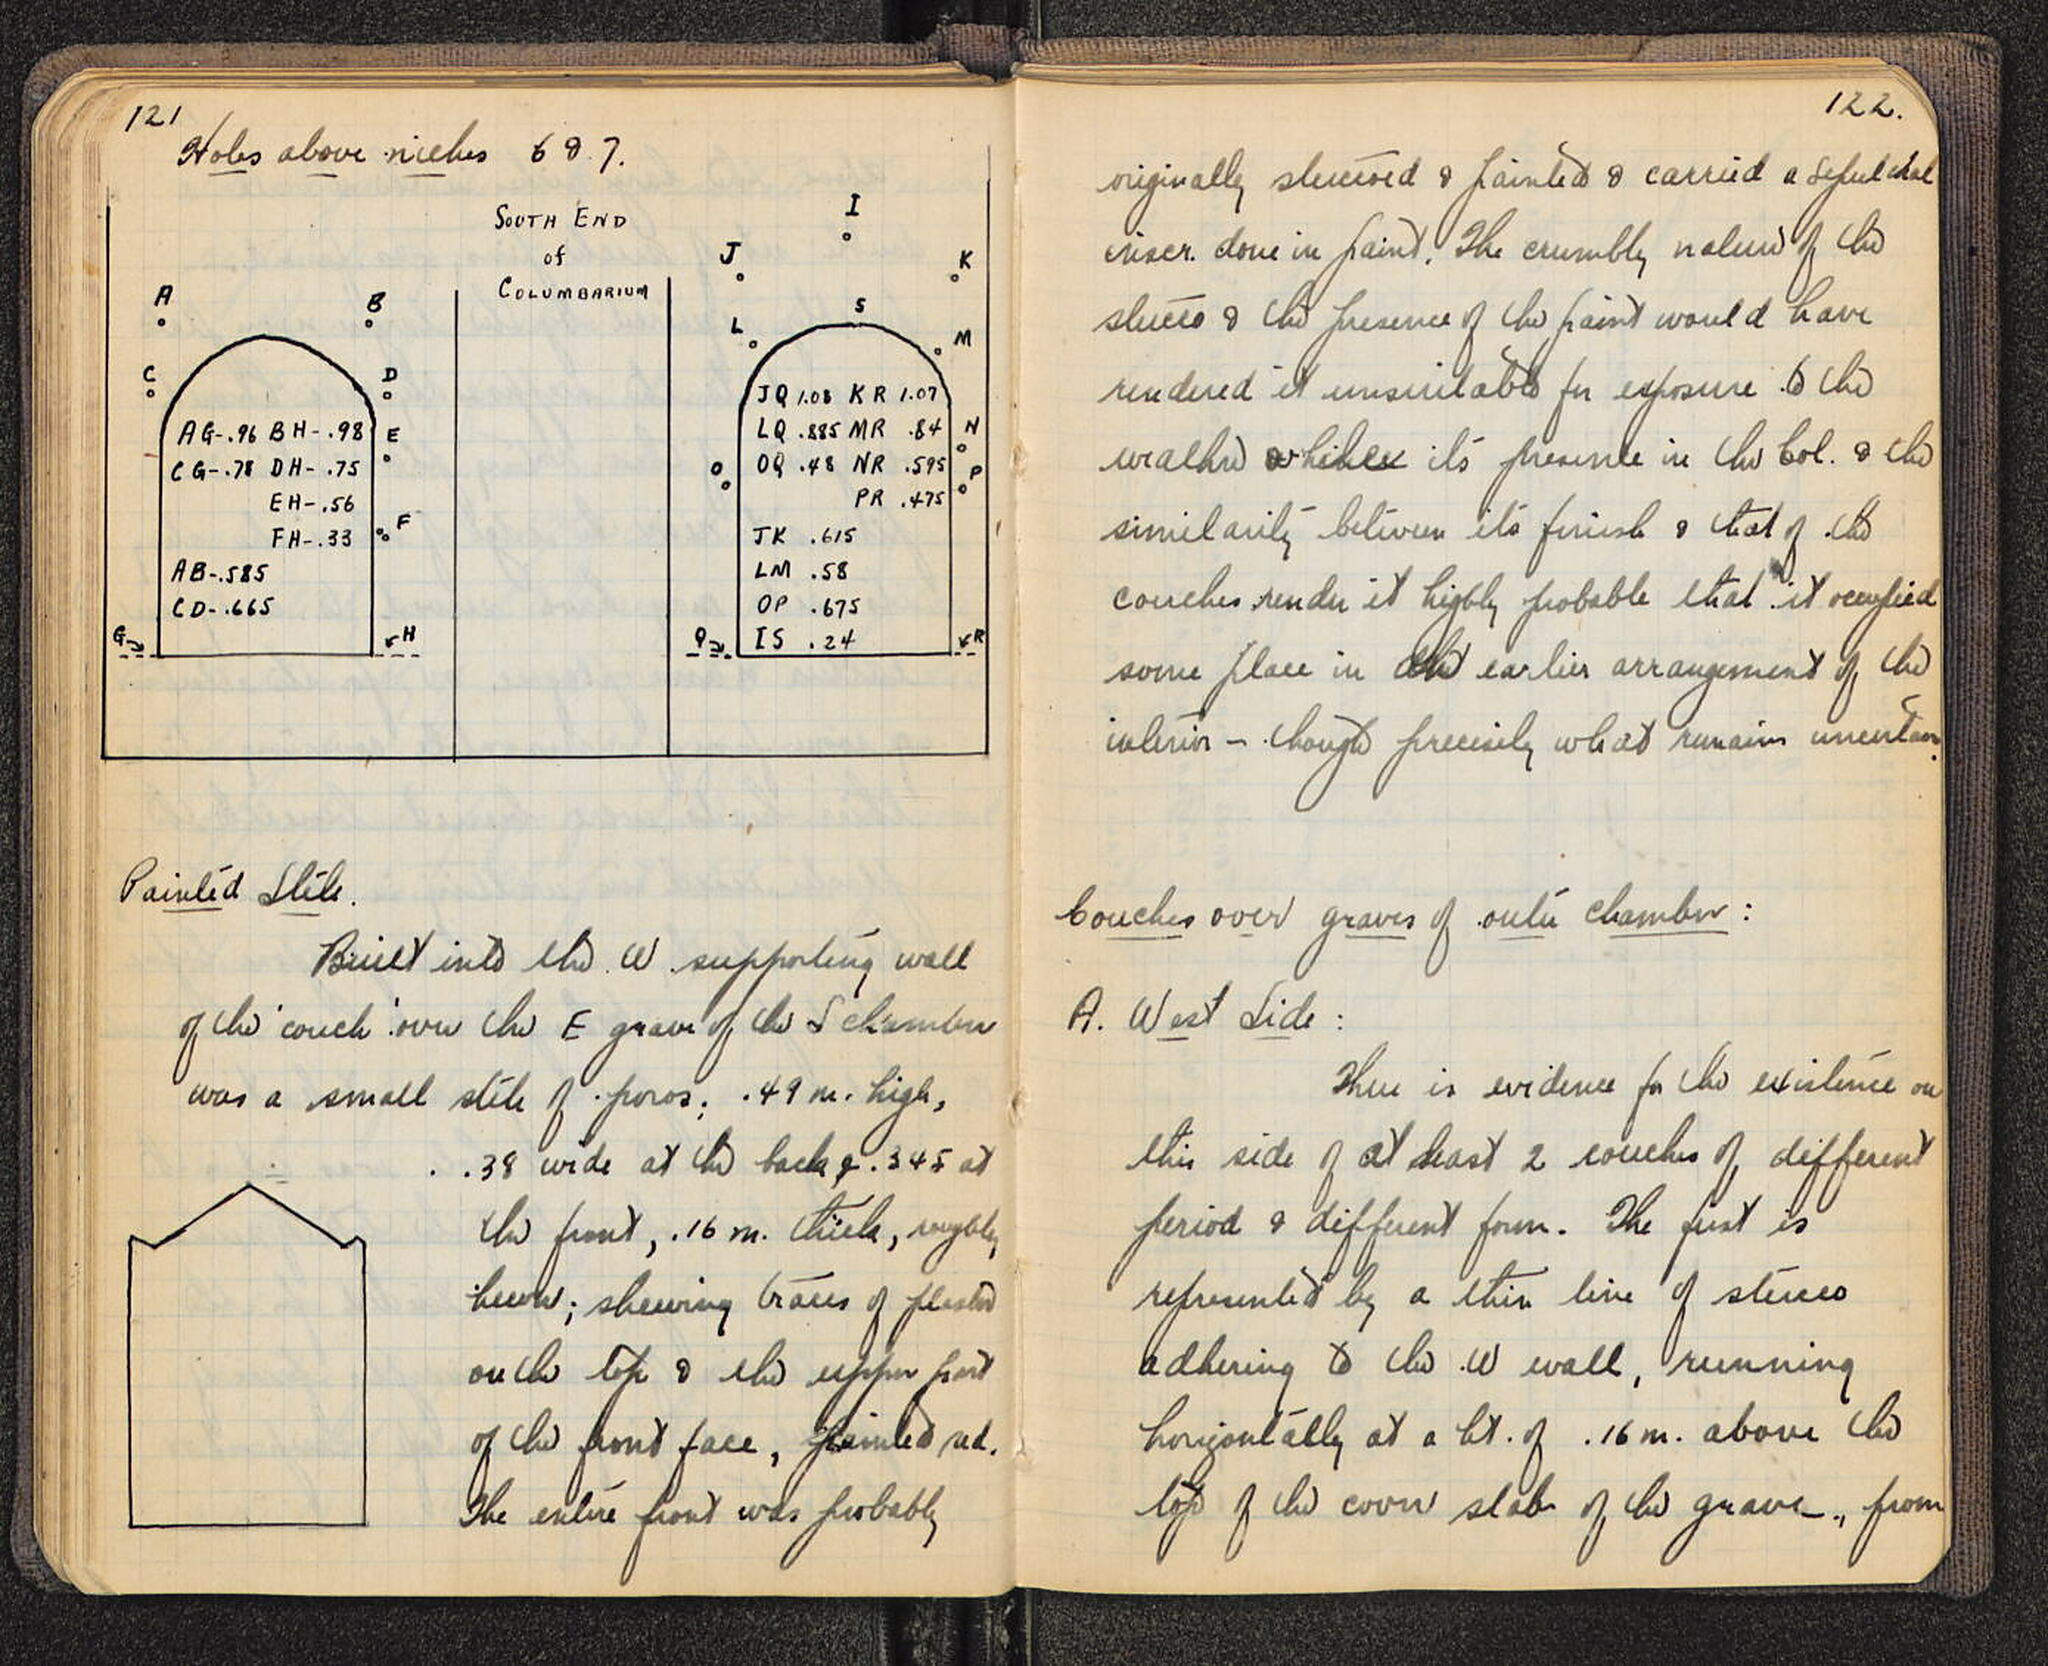 121
Holes above niches 6 & 7.
SOUTH END
of
COLUMBARIUM
A
B
C
D
E
F
G
H
AG-.96 BH-.98
CG-.78 DH-.75
EH-.56
FH-.33
AB-.585
CD-.665
I
J
K
S
L
M
N
O
P
Q
R
JQ 1.08 KR 1.07
LQ .885 MR .84
OQ .48 NR .595
PR .475
JK .615
LM .58
OP .675
IS .24
Painted Stele.
Built into the W supporting wall
of the 'couch' over the E grave of the S chamber
was a small stele of poros; .49 m. high,
.38 wide at the back & .345 at
the front, .16 m. thick, roughly
hewn; shewing traces of plaster
on the top & the upper part
of the front face, painted red.
The entire front was probably
122.
originally stuccoed & painted & carried a sepulchral
inscr. done in paint. The crumbly nature of the
stucco & the presence of the paint would have
rendered it unsuitable for exposure to the
weather while its presence in the Col. & the
similarity between its finish & that of the
couches render it highly probable that it occupied
some place in the earlier arrangement of the
interior - though precisely what remains uncertain.
Couches over graves of outer chamber:
A. West Side:
There is evidence for the existence on
this side of at least 2 couches of different
period & different form. The first is
represented by a thin line of stucco
adhering to the W wall, running
horizontally at a ht. of .16 m. above the
top of the cover slab of the grave, from